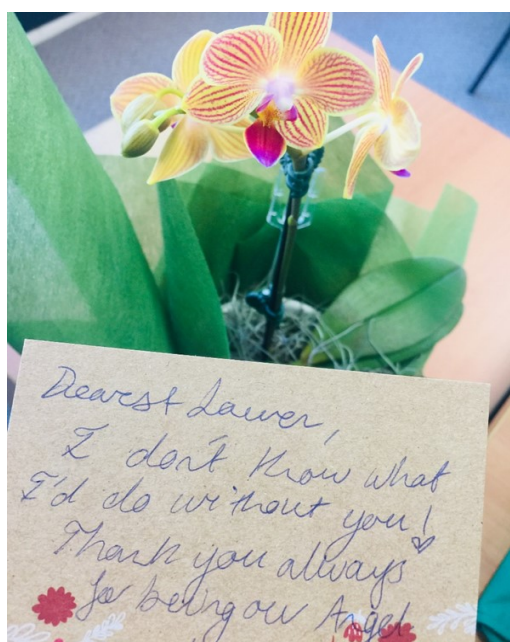 Dearest Lauren,
I don't know what
I'd do without you!
Thank you always
for being our Angel